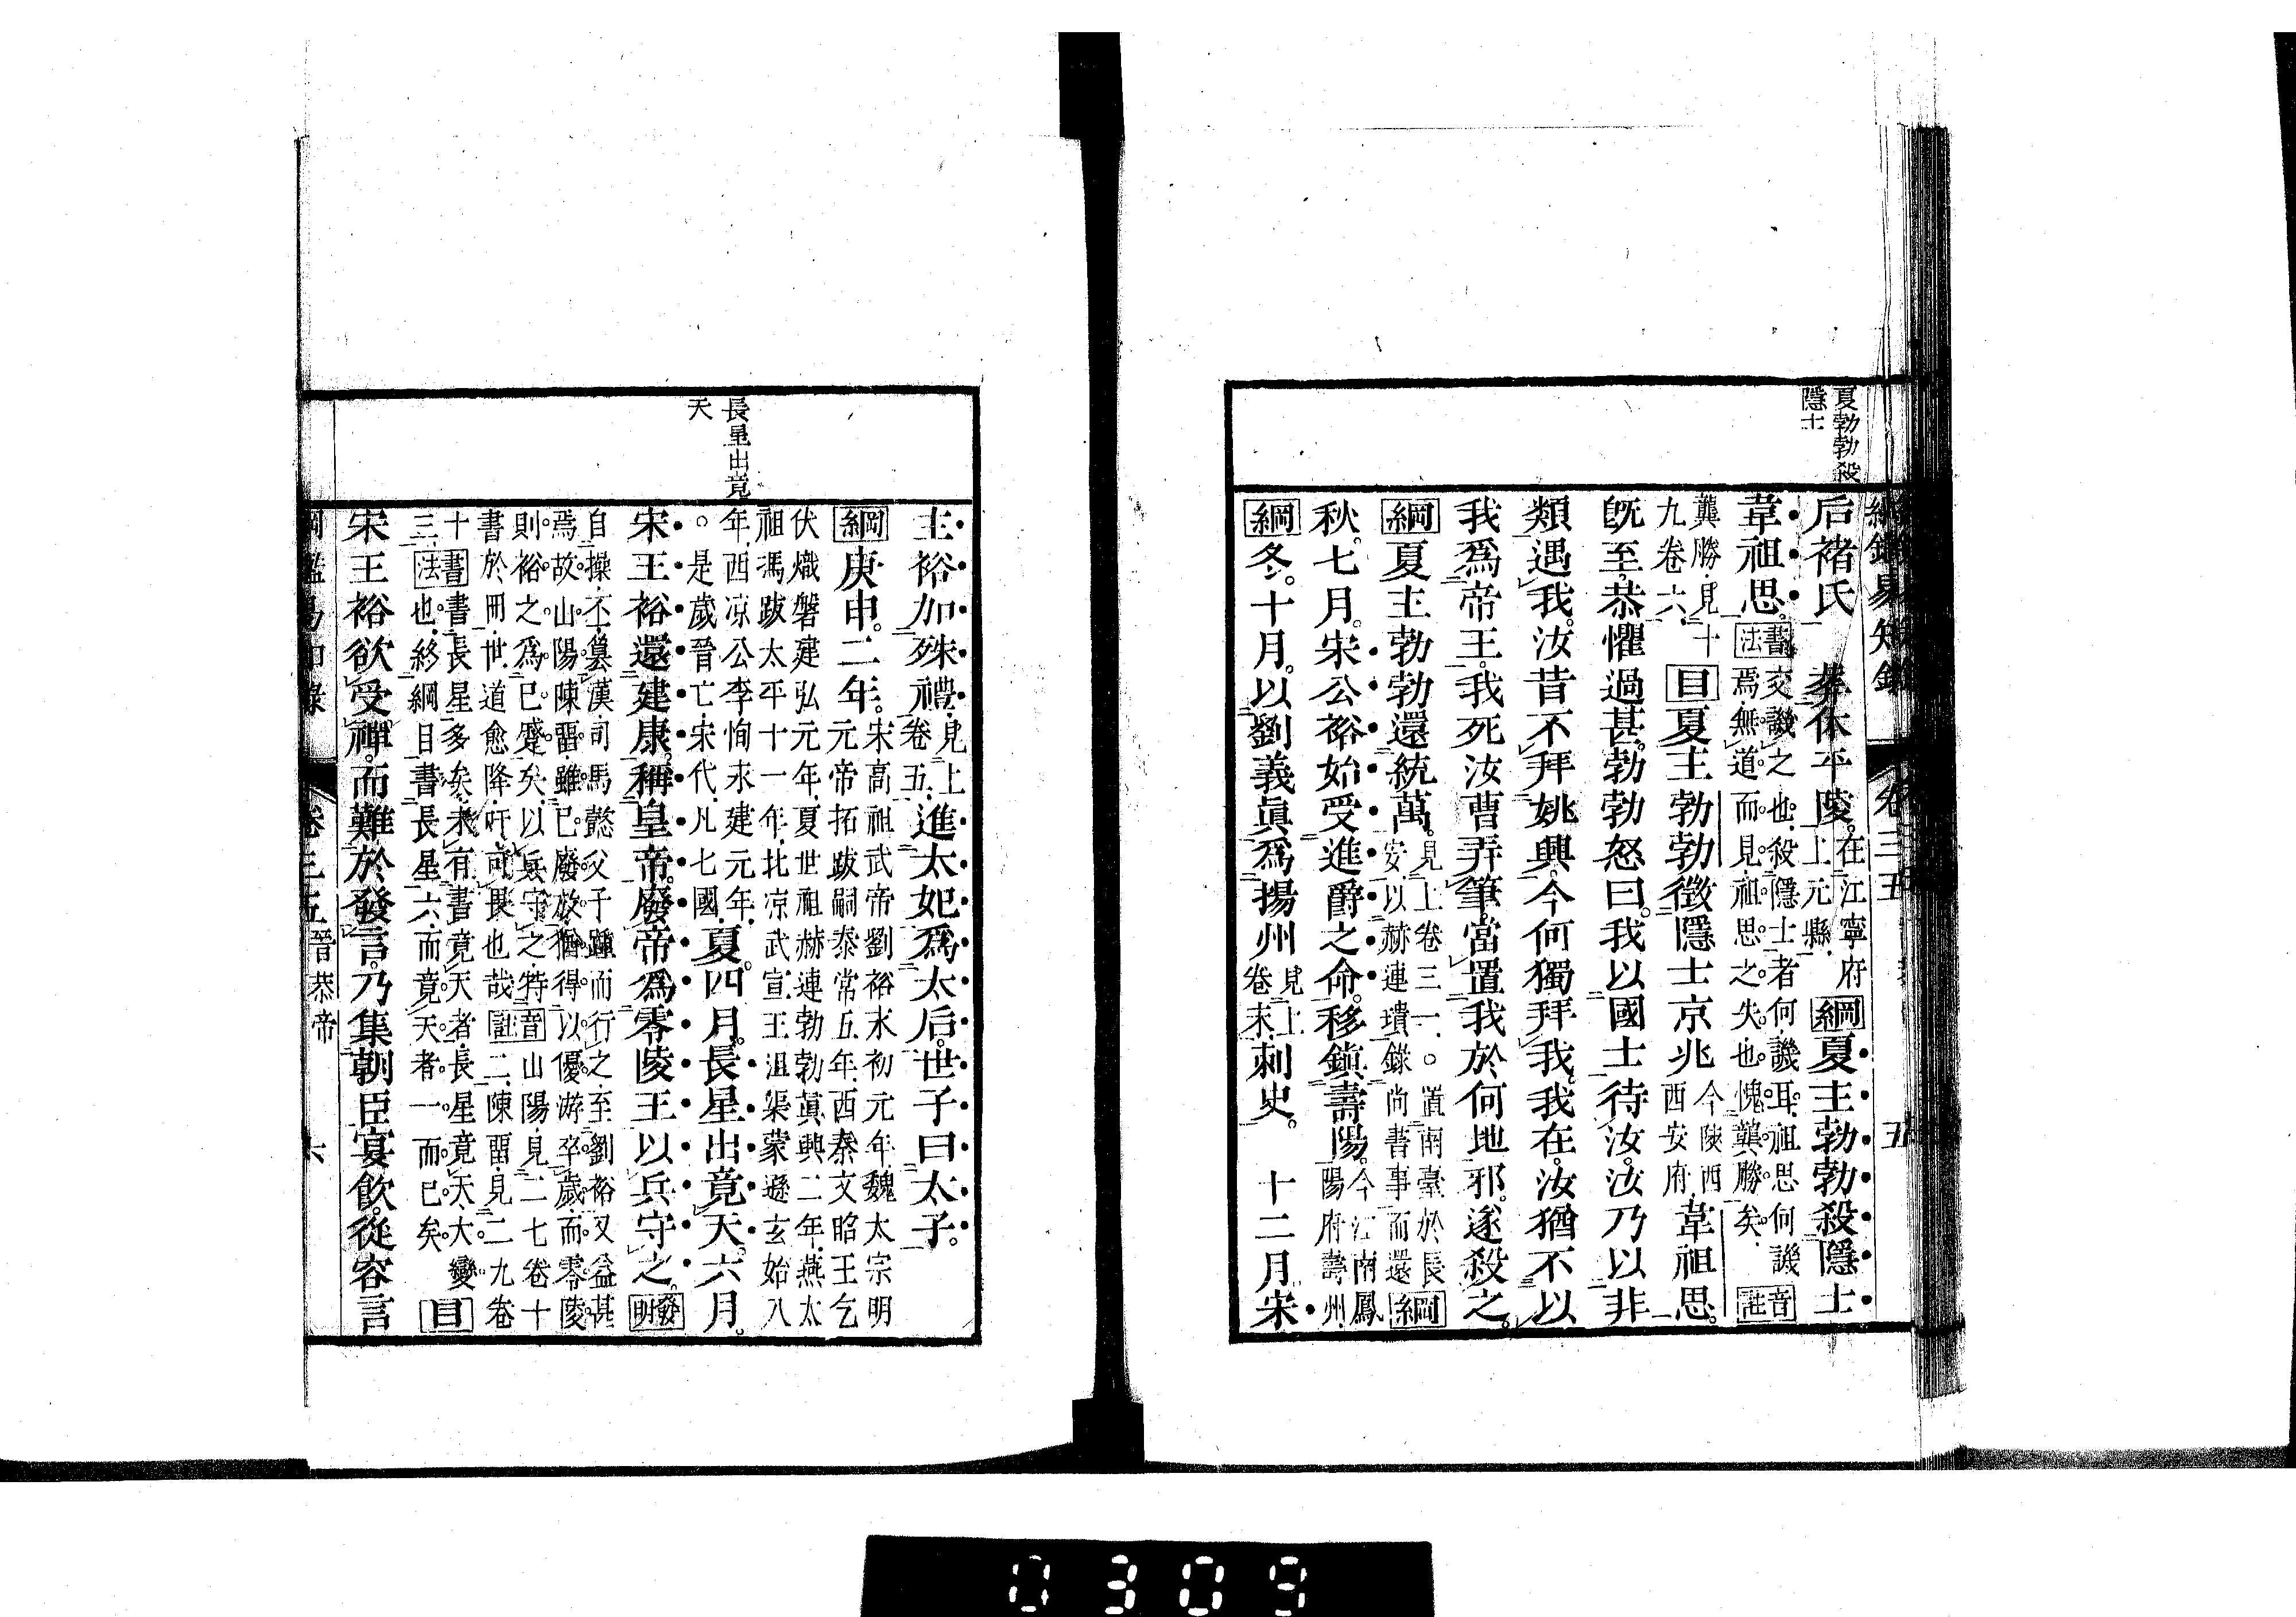 夏勃勃殺
隱士
綱鑑易知錄
卷三五
五
后褚氏
葬休平陵
在江寧府
上元縣
綱夏主勃勃殺隱士
韋祖思
書法
交譏之也殺隱士者何譏耳祖思何譏
焉無道而見祖思之失也愧龔勝矣
音註
龔勝見十
九卷六
目夏主勃勃徵隱士京兆
今陝西
西安府
韋祖思
既至恭懼過甚勃勃怒曰我以國士待汝汝乃以非
類遇我汝昔不拜姚興今何獨拜我我在汝猶不以
我爲帝王我死汝曹弄筆當置我於何地邪遂殺之
綱夏主勃勃還統萬
見上卷三一○置南臺於長
安以赫連璝錄尚書事而還
綱
秋七月宋公裕始受進爵之命移鎭壽陽
今江南鳳
陽府壽州
綱冬十月以劉義眞爲揚州
見上
卷末
刺史
十二月宋
長星出竟
天
主裕加殊禮
見上
卷五
進太妃爲太后世子曰太子
綱庚申二年
宋高祖武帝劉裕永初元年魏太宗明
元帝拓跋嗣泰常五年西秦文昭王乞
伏熾磐建弘元年夏世祖赫連勃勃眞興二年燕太
祖馮跋太平十一年北凉武宣王沮渠蒙遜玄始八
年西凉公李恂永建元年
○是歲晉亡宋代凡七國
夏四月長星出竟天六月
宋王裕還建康稱皇帝廢帝爲零陵王以兵守之
發明
自操丕篡漢司馬懿父子踵而行之至劉裕又益甚
焉故山陽陳畱雖已廢放猶得以優游卒歲而零陵
則裕之爲已蹙矣以兵守之特
書於冊世道愈降吁可畏也哉
音註
山陽見二七卷十
二陳畱見二九卷
十
書法
書長星多矣未有書竟天者長星竟天大變
也終綱目書長星六而竟天者一而已矣
三
目
宋王裕欲受禪而難於發言乃集朝臣宴飲從容言
綱鑑易知錄
卷三五
晉恭帝
六
0309